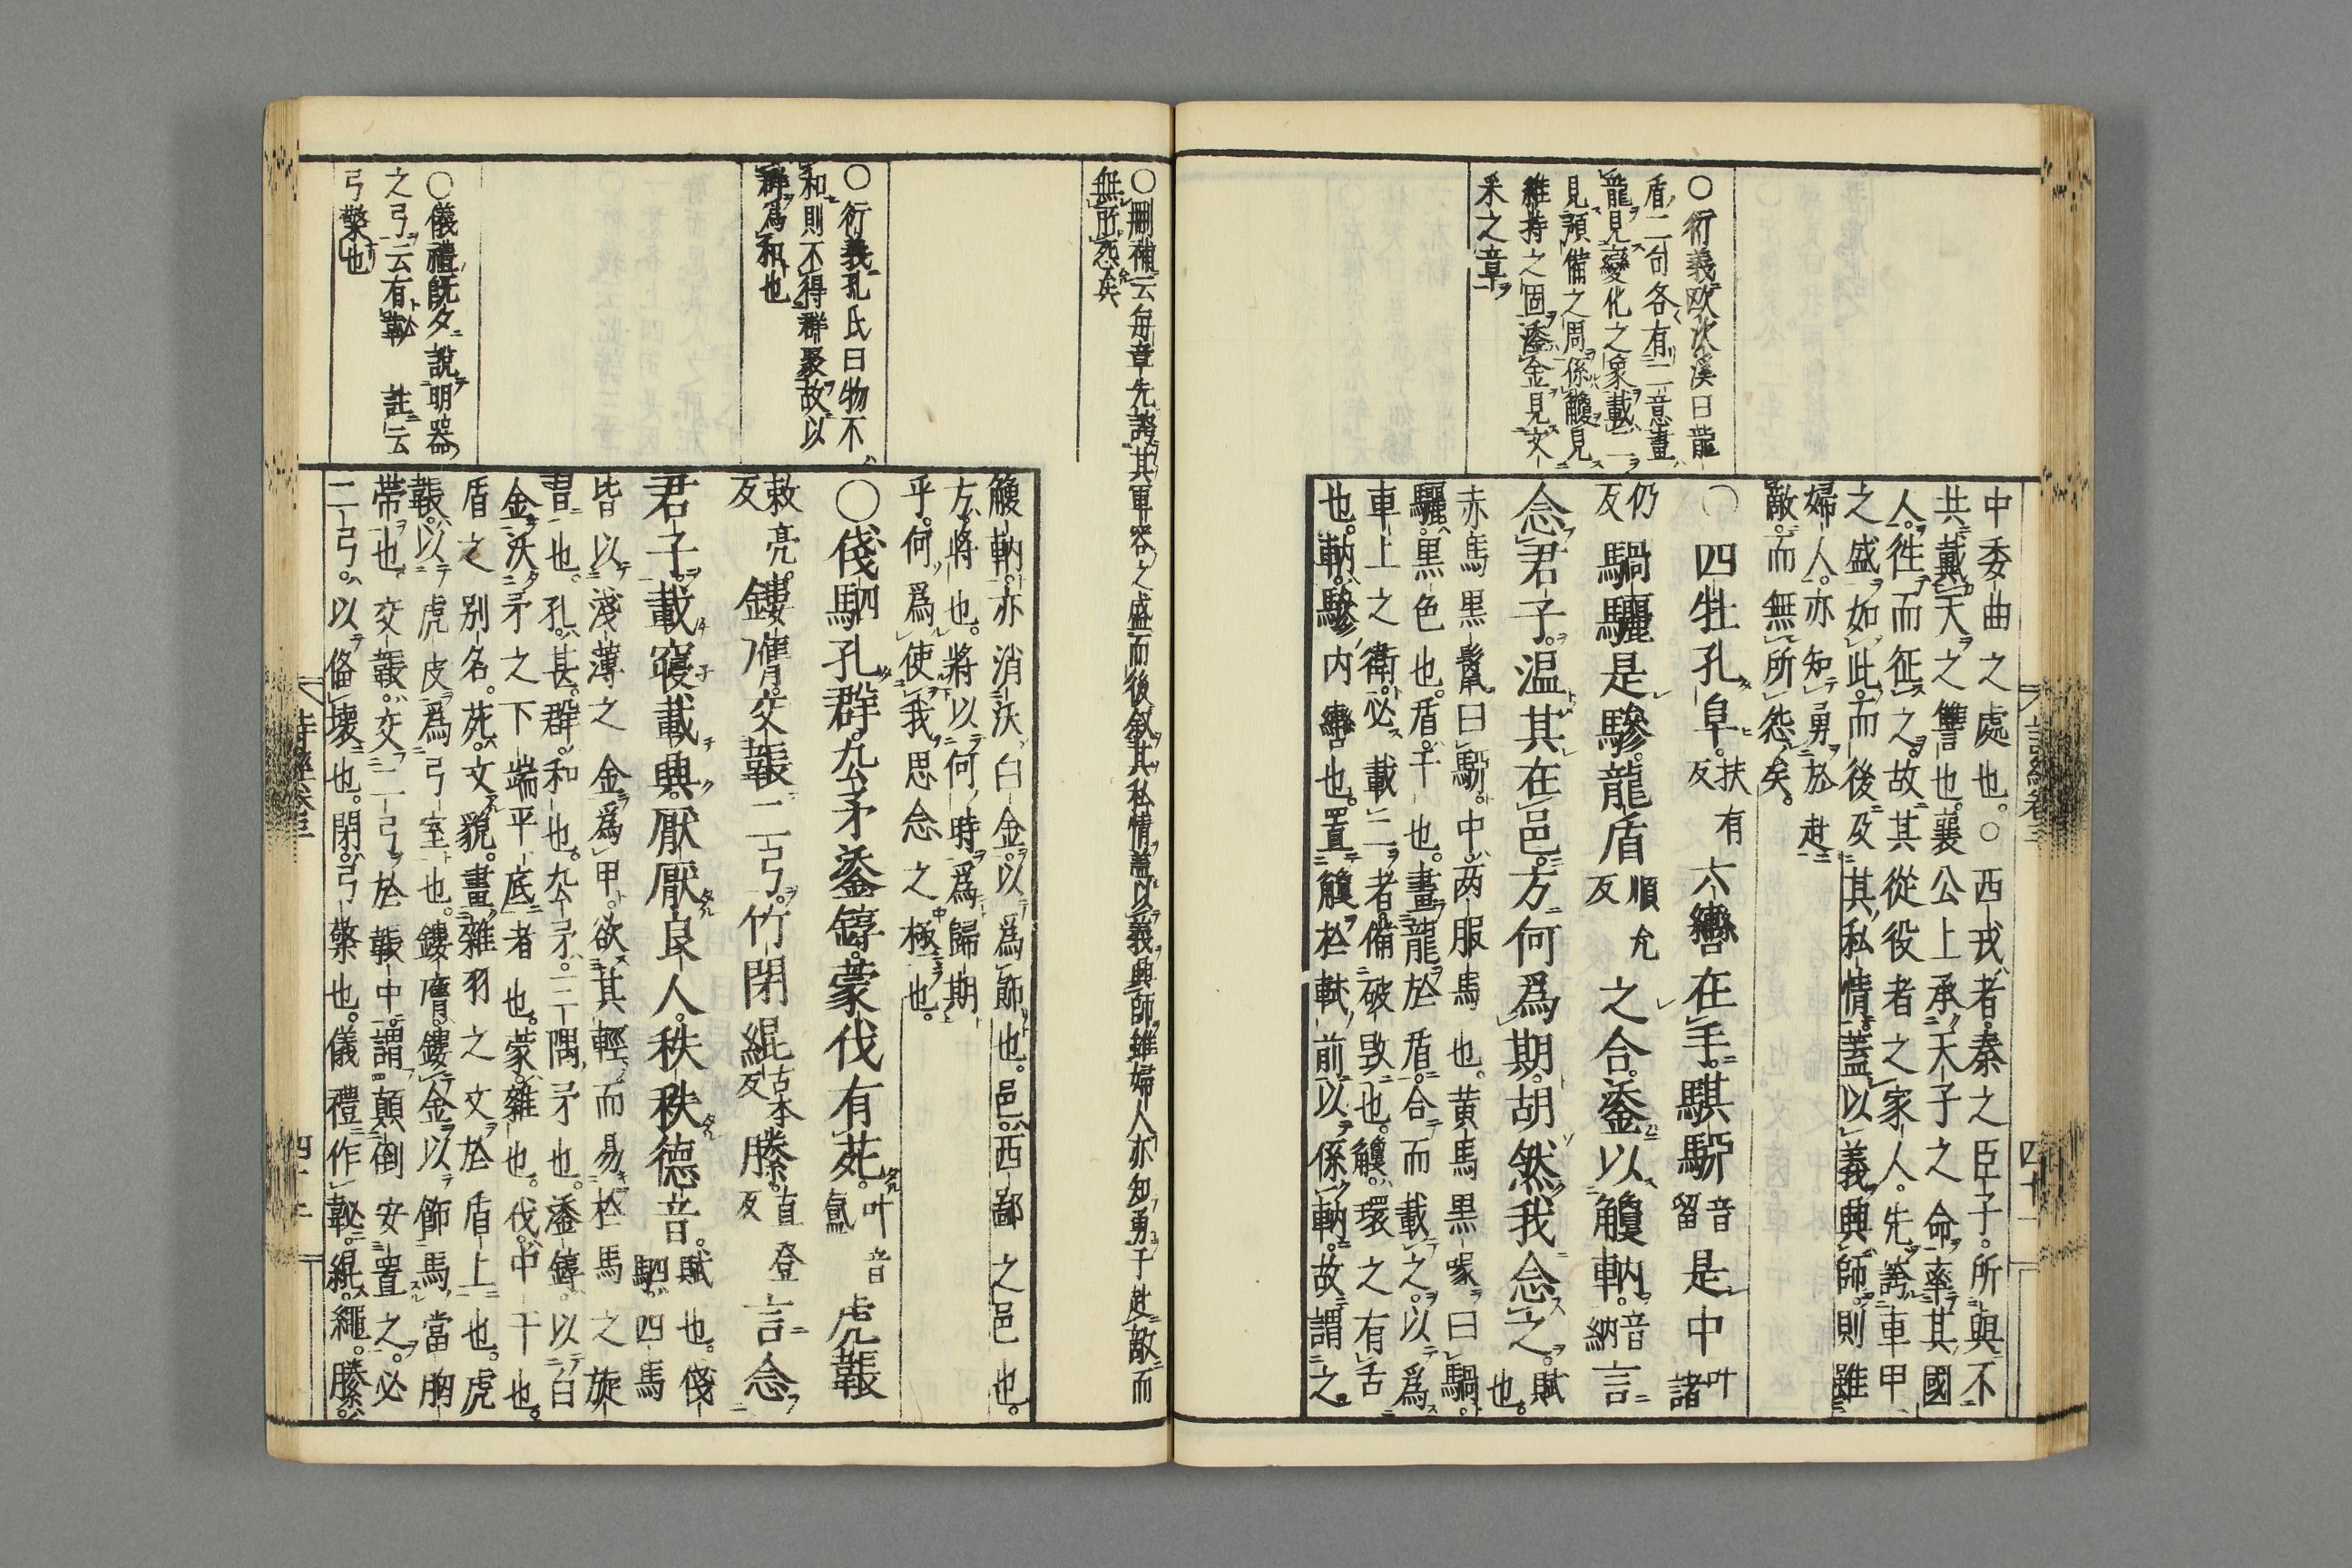 中委曲之處也。○西戎者。秦之臣子。所與不
共戴天之讐也。襄公上承天子之命率其國
人。徃而征之。故其從役者之家人。先誇車甲
之盛如此。而後及其私情。蓋以義興師。則雖
婦人。亦知勇於赴
敵。而無所怨矣。
○四牡孔阜。扶有反六轡在手。騏駵音留是中叶諸
仍反騧驪是驂。龍盾順允反之合。鋈以觼軜。音納言
念君子。温其在邑。方何爲期。胡然我念之。賦也。
赤馬黒鬣曰駵。中。两服馬也。黄馬黒喙曰騧。
驪。黒色也。盾。干也。畫龍於盾。合而載之。以爲
車上之衛。必載二者。備破毀也。觼。環之有舌
也。軜。驂内轡也。置觼於軾前以係軜。故謂之
○衍義欧次溪曰龍
盾二句各有二意畫
龍見變化之象載二
見預備之周係觼見
維持之固鋈金見文
釆之章
詩經卷三
四十一
○刪補云毎章先誇其軍容之盛而後叙其私情蓋以義興師雖婦人亦知勇于赴敵而
無所怨矣
觼軜。亦消沃白金。以爲飾也。邑。西鄙之邑也。
方。將也。將以何時爲歸期
乎。何爲使我思念之極也。
○俴駟孔群。厹矛鋈錞。蒙伐有苑。叶音氳虎韔
敕亮反鏤膺。交韔二弓。竹閉緄古本反縢。直登反言念
君子。載寝載興。厭厭良人。秩秩德音。賦也。俴駟。四馬
皆以淺薄之金爲甲。欲其輕而易於馬之旋
習也。孔。甚。群。和也。厹矛。三隅矛也。鋈錞。以白
金沃矛之下端平底者也。蒙。雜也。伐。中干也。
盾之别名。苑。文貌。畫雜羽之文於盾上也。虎
韔。以虎皮爲弓室也。鏤膺。鏤金以飾馬當胷
帯也。交韔。交二弓於韔中。謂顛倒安置之。必
二弓。以備壊也。閉。弓檠也。儀禮作䪐。緄。繩。縢。
○衍義孔氏曰物不
和則不得群聚故以
群爲和也
○儀禮既夕說明器
之弓云有䪐 註云
弓檠也
詩經卷三
四十二